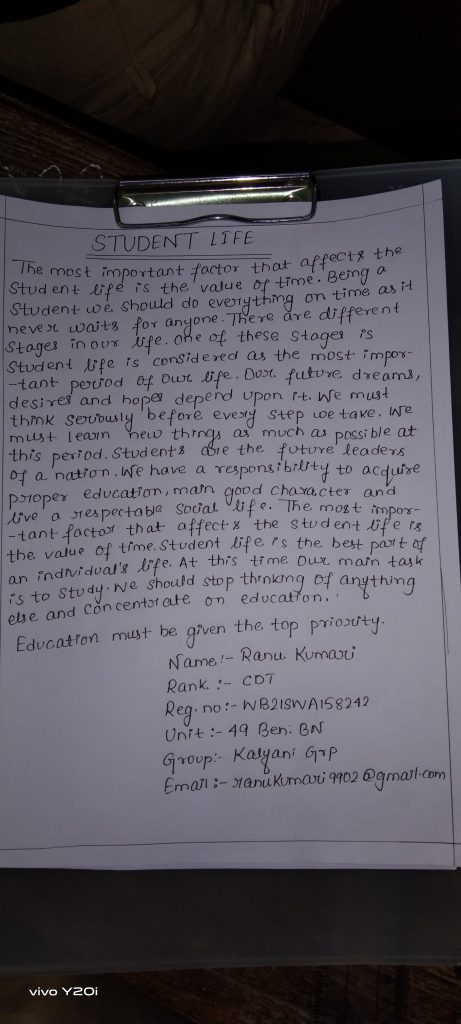 STUDENT LIFE
The most important factor that affects the
Student life is the value of time. Being a
Student we should do everything on time as it
never waits for anyone. There are different
Stages in our life. One of these Stages is
Student life is considered as the most impor-
-tant period of our life. Our future dreams,
desires and hopes depend upon it. We must
think seriously before every step we take. We
must learn new things as much as possible at
this period. Students are the future leaders
of a nation. We have a responsibility to acquire
proper education, main good character and
live a respectable social life. The most impor-
-tant factor that affects the student life is
the value of time. Student life is the best part of
an individual's life. At this time our main task
is to study. We should stop thinking of anything
else and concentrate on education.
Education must be given the top priority.
Name:- Ranu Kumari
Rank :- CDT
Reg. no:- WB21SWA158242
Unit :- 49 Ben: BN
Group:- Kalyani Grp
Email :- ranukumari9902@gmail.com
vivo Y20i